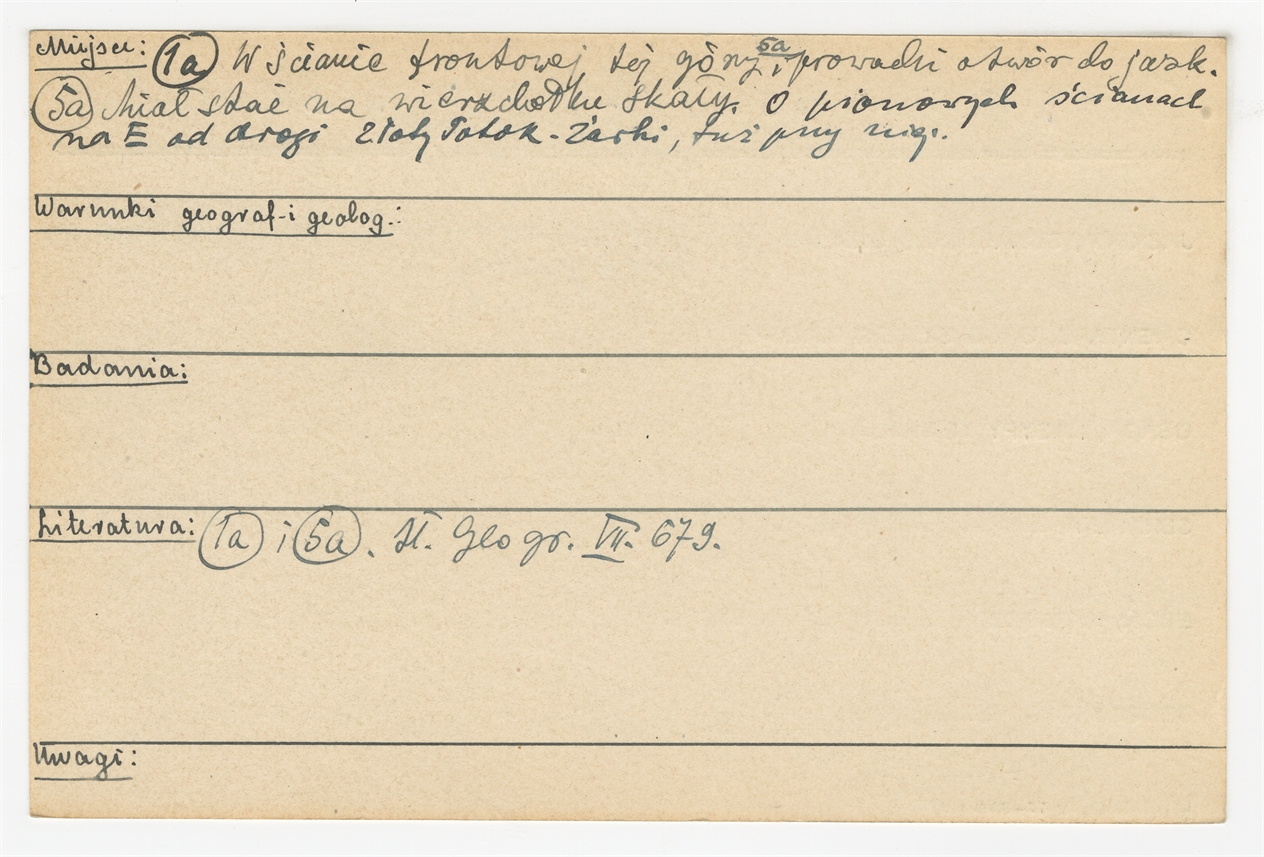 Miejsce: 1a W ścianie frontowej tej góry 5a i prowadzi otwór do jask.
5a Miał stać na wierzchołku skały. O pionowych ścianach
na E od drogi Złoty Potok - Żarki, tuż przy niej.
Warunki geograf-i geolog.:
Badania:
Literatura: 1a i 5a. Sł. Geogr. VII. 679.
Uwagi: